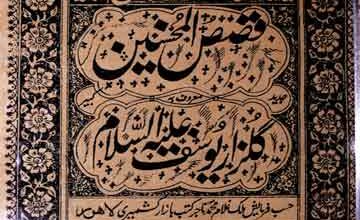 قصص المحسنین
معروف بہ
گلزار یوسف علیہ السلام
حسب فرمایش ملک غلام محمد تاجر کتب بازار کشمیری لاہور